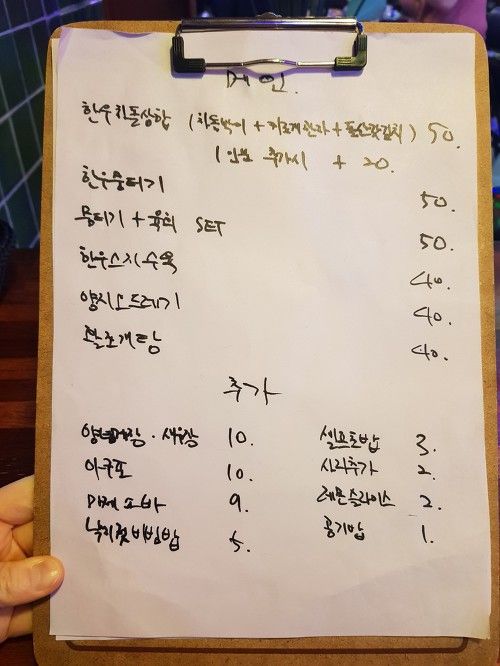 메인.
한우차돌삼합 (차돌박이 + 키조개관자 + 돌산갓김치) 50.
1인분 추가시 + 20.
한우뭉티기 50.
뭉티기 + 육회 SET 50.
한우스지수육 40.
양지스드레기 40.
조개탕 40.
추가
양념게장 · 새우장 10.
아구포 10.
마제소바 9.
낙지젓비빔밥 5.
셀프초밥 3.
사리추가 2.
레몬슬라이스 2.
공기밥 1.